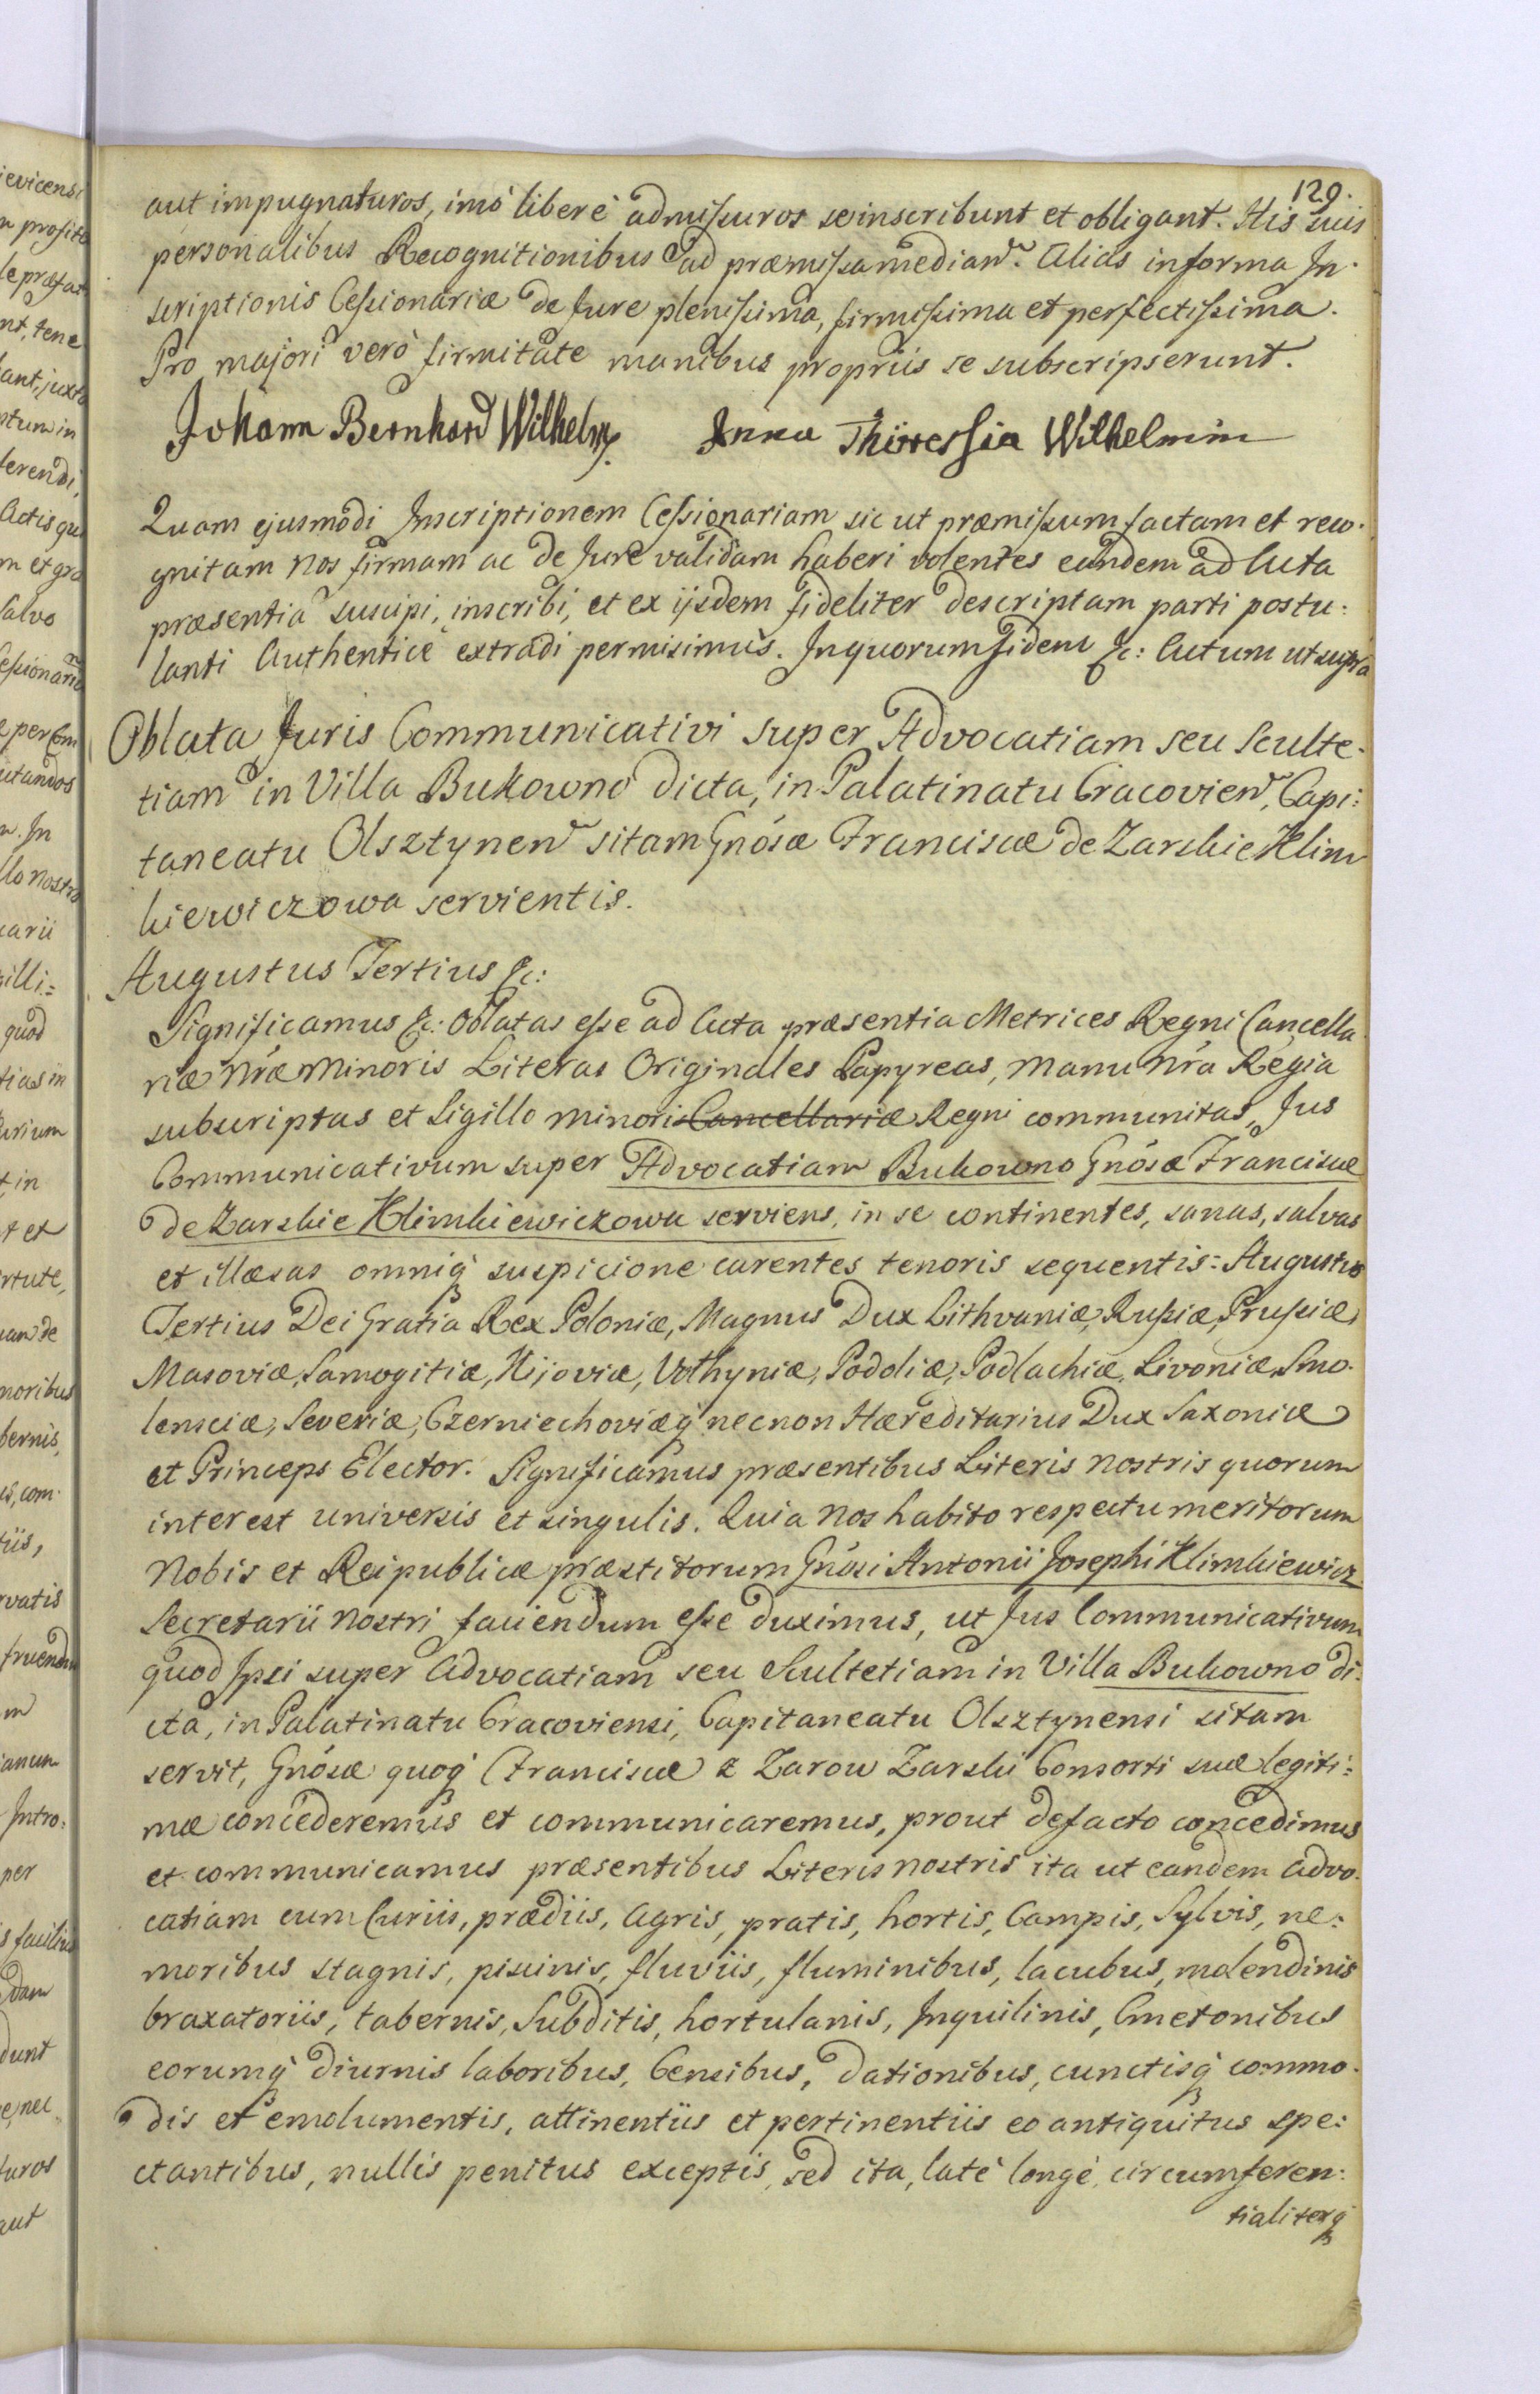 129.
aut impugnaturos, imò liberè admissuros se inscribunt et obligant. His suis
personalibus Recognitionibus ad præmissa median͠. Alias in forma In-
scriptionis Cessionariæ de Jure plenissima, firmissima et perfectissima.
Pro majori verò firmitate manibus propriis se subscripserunt.
Johann Bernhard Wilhelm. Anna Thirressia Wilhelmin
Quam ejusmodi Inscriptionem Cessionariam sic ut præmissum factam et reco-
gnitam nos firmam ac de Jure validam haberi volentes eandem ad Acta
præsentia suscipi, inscribi, et ex iisdem fideliter descriptam parti postu:
lanti Authenticè extradi permisimus. In quorum fidem &c: Actum ut supra
Oblata Juris Communicativi super Advocatiam seu Sculte-
tiam in Villa Bukowno dicta, in Palatinatu Cracovien͠, Capi:
taneatu Olsztynen͠ sitam Gnósæ Franciscæ de Zarskie Klim
kiewiczowa servientis.
Augustus Tertius &c:
Significamus &c: Oblatas esse ad Acta præsentia Metrices Regni Cancella
riæ nr̃æ Minoris Literas Originales Papyreas, manu nr̃a Regia
subscriptas et Sigillo minori Cancellariæ Regni communitas, Jus
Communicativum super Advocatiam Bukowno Gnósæ Franciscæ
de Zarskie Klimkiewiczowa serviens, in se continentes, sanas, salvas
et illæsas omniq̃ suspicione carentes tenoris sequentis: Augustus
Tertius Dei Gratia Rex Poloniæ, Magnus Dux Lithvaniæ, Russiæ, Prussiæ,
Masoviæ, Samogitiæ, Kijoviæ, Volhyniæ, Podoliæ, Podlachiæ, Livoniæ, Smo-
lensciæ, Severiæ, Czerniechoviæq̃ necnon Hæreditarius Dux Saxoniæ
et Princeps Elector. Significamus præsentibus Literis nostris quorum
interest universis et singulis. Quia nos habito respectu meritorum
Nobis et Reipublicæ præstitorum Gnósi Antonii Josephi Klimkiewicz
Secretarii nostri faciendum esse duximus, ut Jus Communicativum
quod Ipsi super Advocatiam seu Scultetiam in Villa Bukowno di-
cta, in Palatinatu Cracoviensi, Capitaneatu Olsztynensi sitam
servit, Gnósæ quoq̃ Franciscæ z Zarow Zarski Consorti suæ legiti:
mæ concederemus et communicaremus, prout defacto concedimus
et communicamus præsentibus Literis nostris ita ut eandem Advo-
catiam cum Curiis, prædiis, Agris, pratis, hortis, Campis, Sylvis, ne:
moribus stagnis, piscinis, fluviis, fluminibus, lacubus, molendinis
braxatoriis, tabernis, Subditis, hortulanis, Inquilinis, Cmetonibus
eorumq̃ diurnis laboribus, Censibus, dationibus, cunctisq̃ commo-
dis et emolumentis, attinentiis et pertinentiis eo antiquitus spe:
ctantibus, nullis penitus exceptis, sed ita, latè longè, circumferen:
tialiterq̃